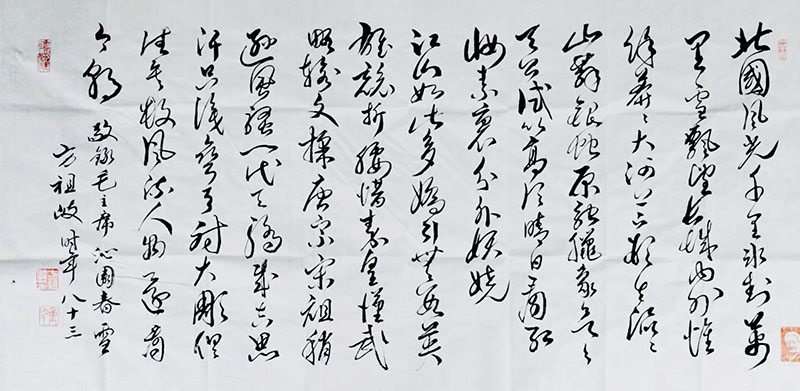 北國風光千里冰封萬
里雪飄望長城內外惟
餘莽〻大河上下頓失滔〻
山舞銀蛇原馳蠟象欲与
天公試比高須晴日看紅
妝素裹分外妖嬈
江山如此多嬌引無數英
雄競折腰惜秦皇漢武
略輸文採唐宗宋祖稍
遜風騷一代天驕成吉思
汗只識彎弓射大雕俱
往矣數風流人物還看
今朝 敬錄毛主席沁園春雪
方祖岐时年八十三